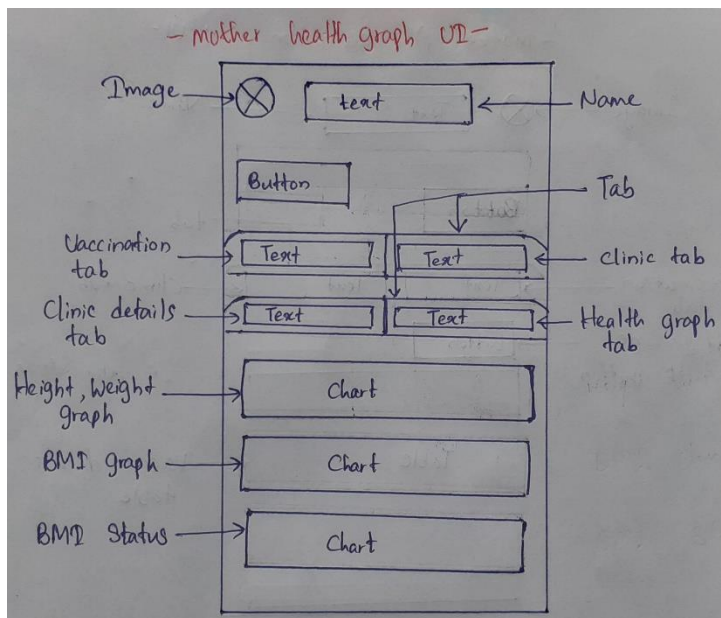 - mother health graph UI -
Image
text
Name
Button
Tab
Vaccination
tab
Text
Text
clinic tab
Clinic details
tab
Text
Text
Health graph
tab
Height, Weight
graph
Chart
BMI graph
Chart
BMI Status
Chart